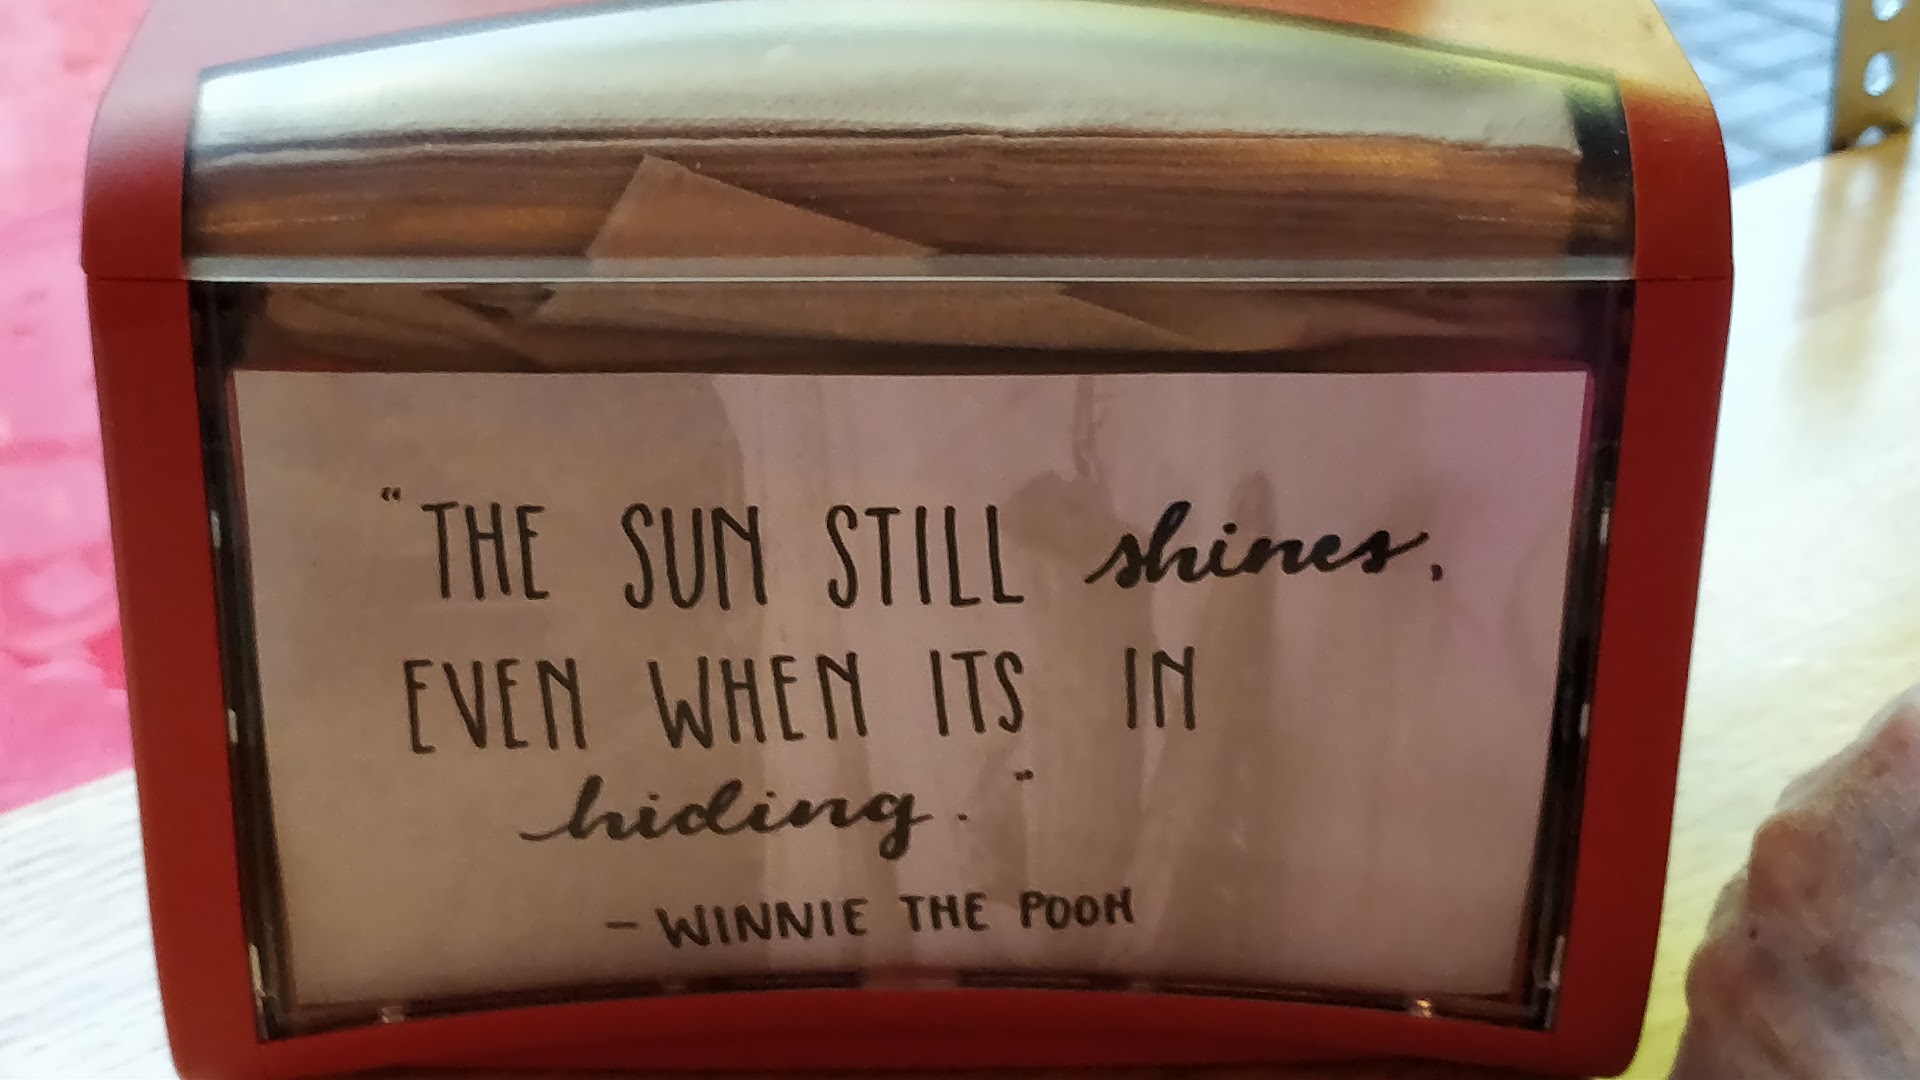 "THE SUN STILL shines,
EVEN WHEN ITS IN
hiding."
- WINNIE THE POOH